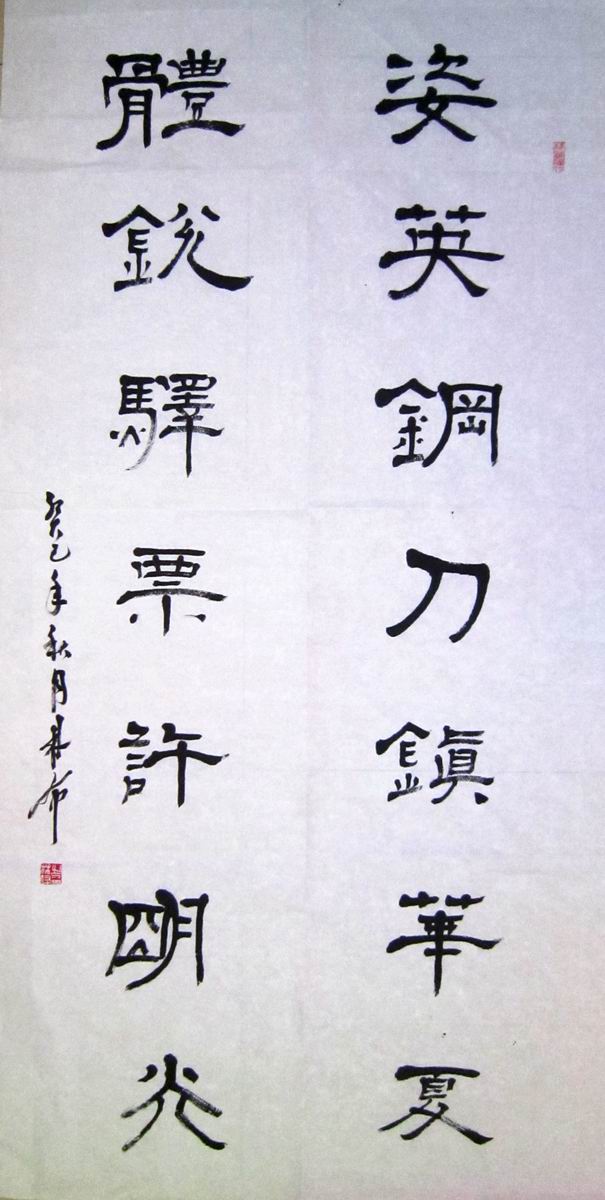 姿英鋼刀鎮華夏
體銳驛票許明光
癸巳年秋月